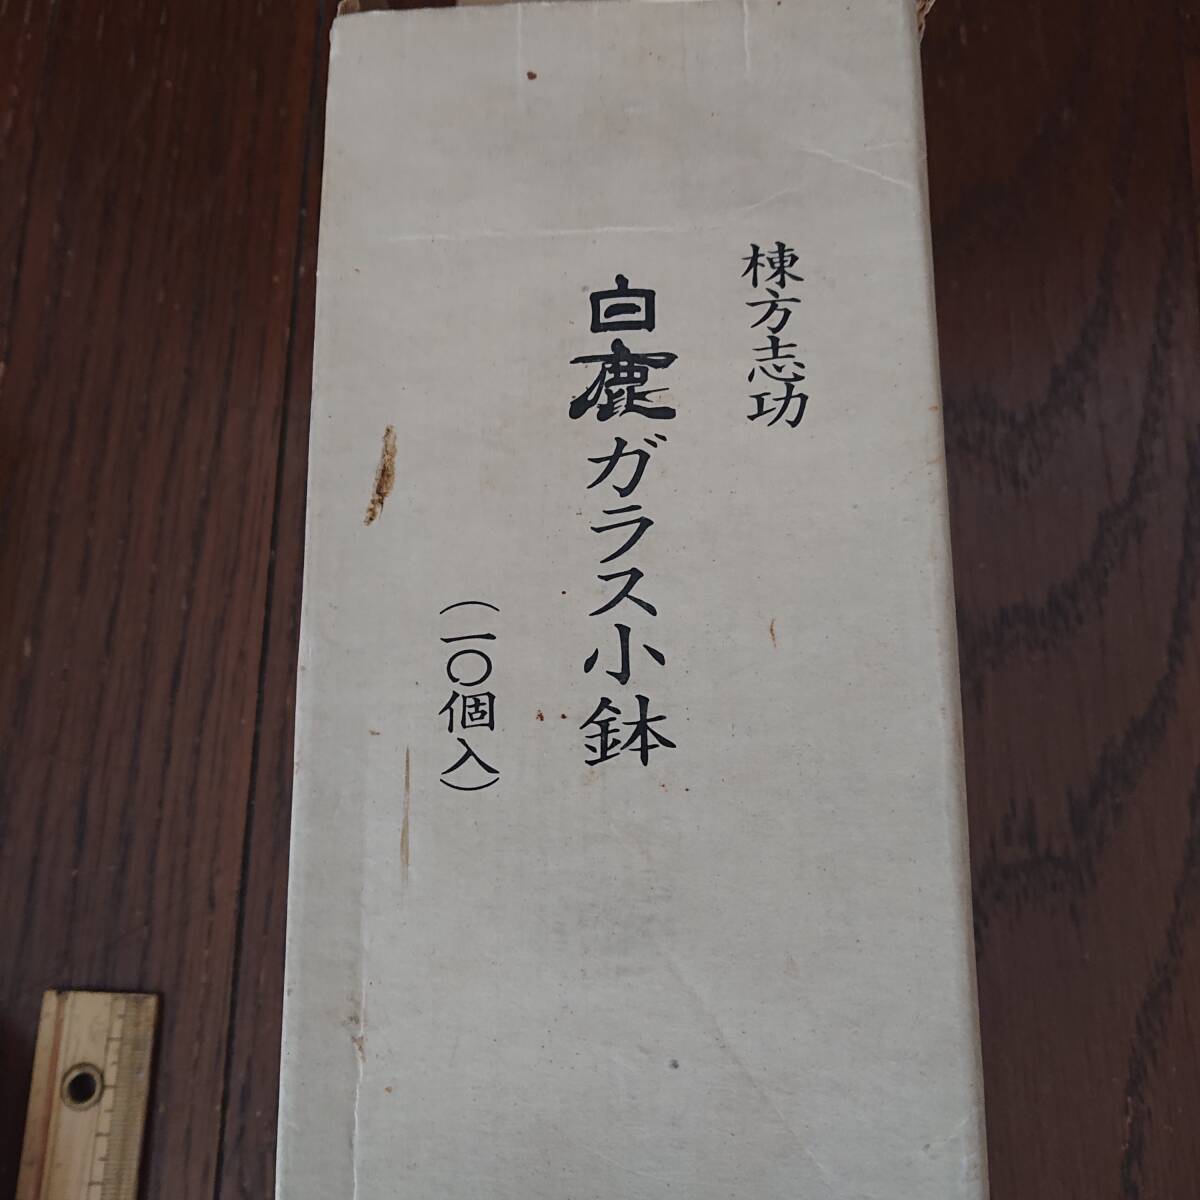 棟方志功
白鹿ガラス小鉢
（一〇個入）